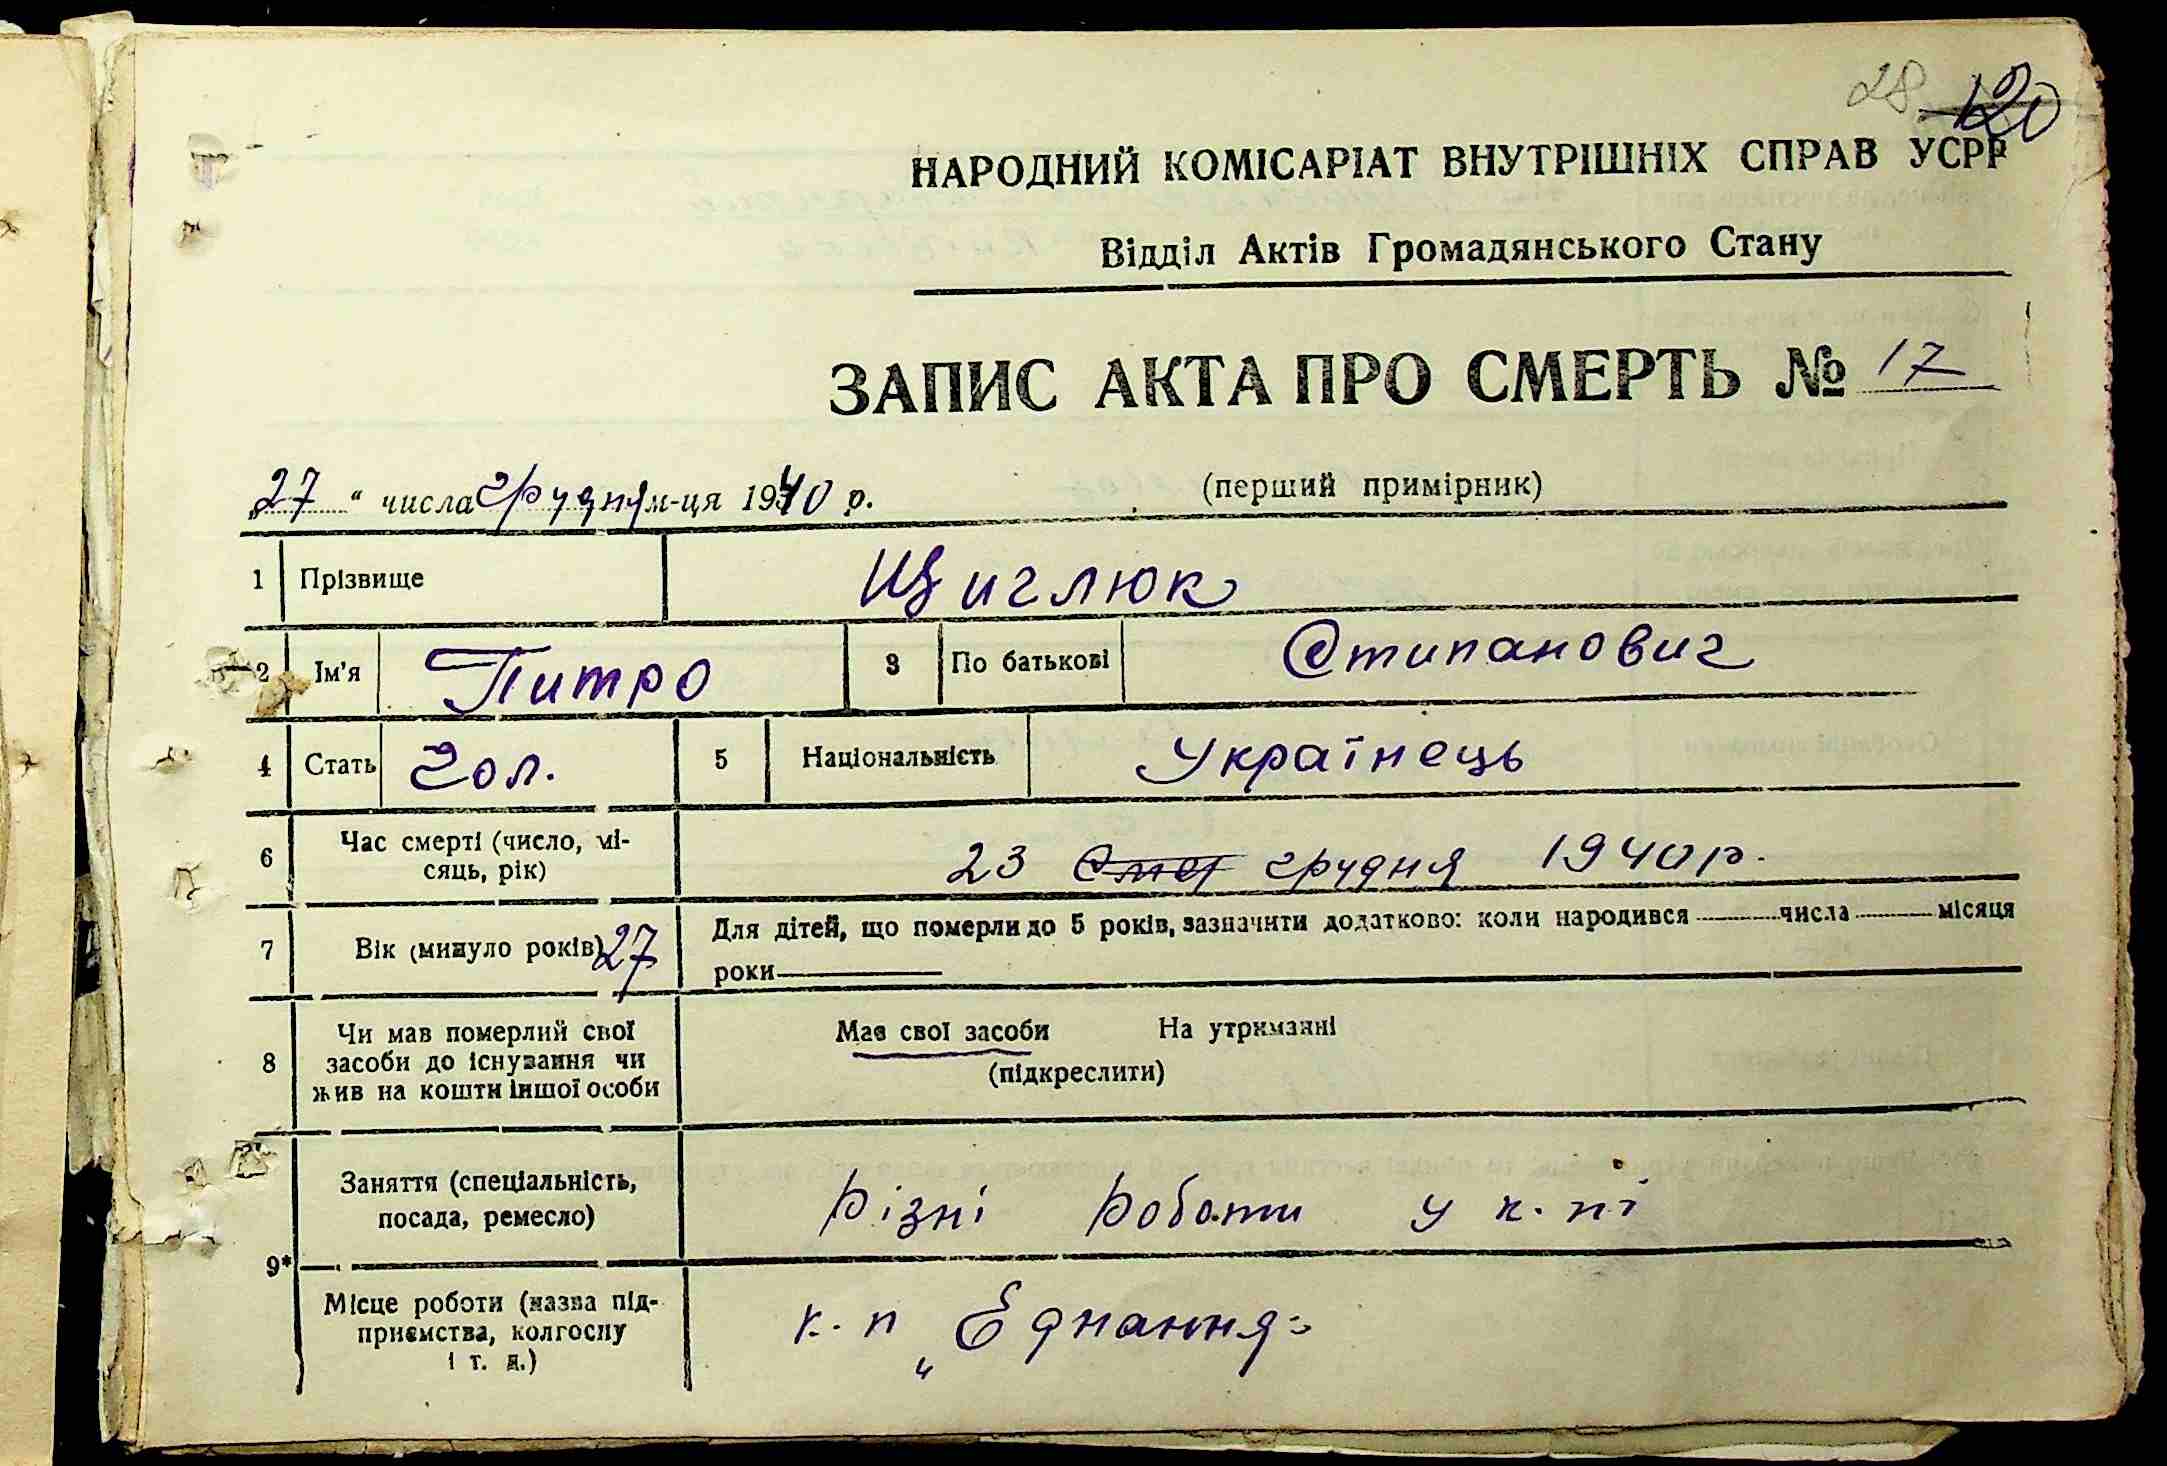 28 120
НАРОДНИЙ КОМІСАРІАТ ВНУТРІШНІХ СПРАВ УСРР
Відділ Актів Громадянського Стану
ЗАПИС АКТА ПРО СМЕРТЬ № 17
„27“ числа грудня м-ця 1940 р. (перший примірник)
1 Прізвище Щиглюк
2 Ім'я Питро 3 По батькові Стипанович
4 Стать Чол. 5 Національність Українець
6 Час смерті (число, мі-
сяць, рік) 23 грудня 1940 р.
7 Вік (минуло років) 27 Для дітей, що померли до 5 років, зазначити додатково: коли народився числа місяця
роки
8 Чи мав померлий свої
засоби до існування чи
жив на кошти іншої особи
Мав свої засоби На утриманні
(підкреслити)
9* Заняття (спеціальність,
посада, ремесло) Різні роботи у к. пі
Місце роботи (назва під-
приємства, колгоспу
і т. д.) к. п „Еднання"